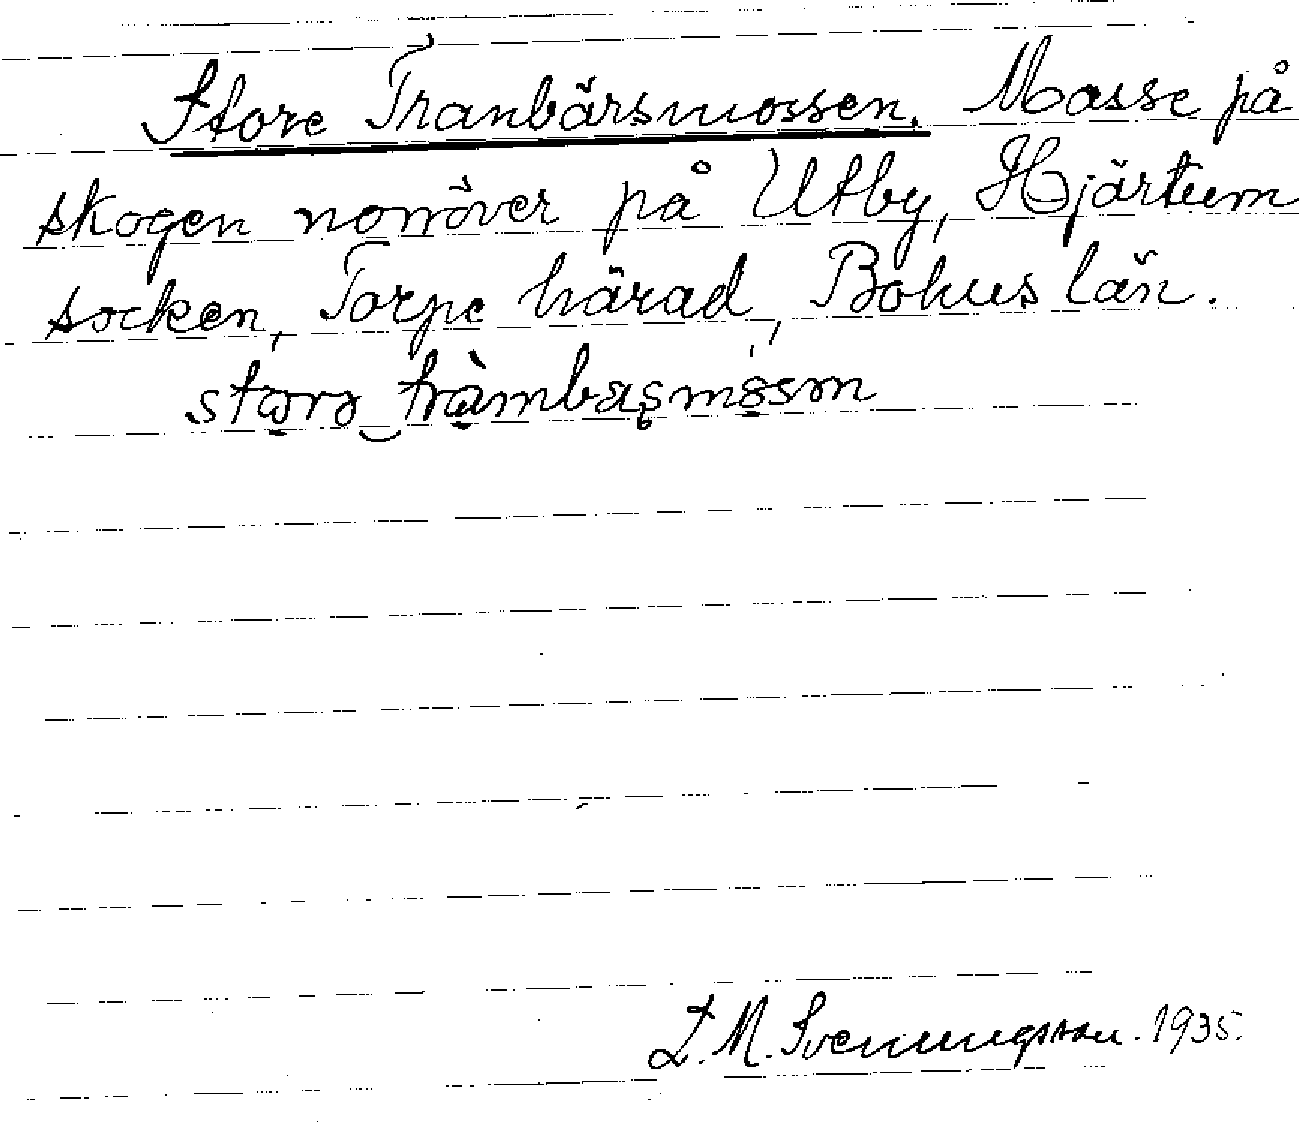 Store Tranbärsmossen. Mosse på
skogen norröver på Utby, Hjärtum
socken, Torpe härad, Bohus län.
L. M. Svenungsson. 1935.